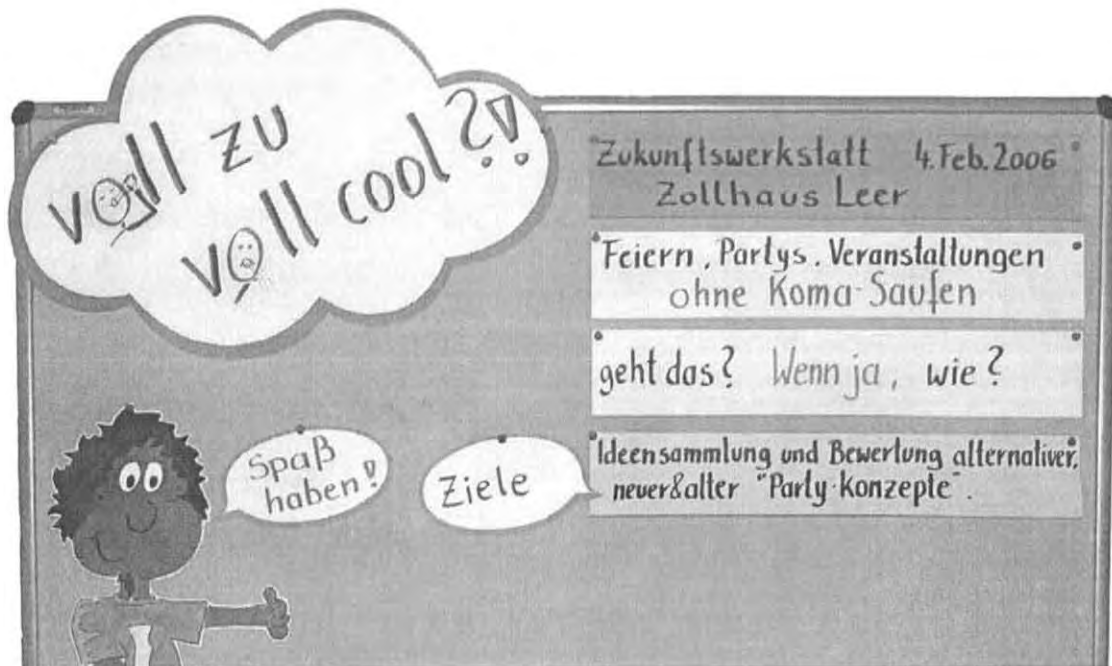 voll zu
voll cool?!
Zukunftswerkstatt 4. Feb. 2006
Zollhaus Leer
Feiern, Partys, Veranstaltungen
ohne Koma-Saufen
geht das? Wenn ja, wie?
Spaß
haben!
Ziele
Ideensammlung und Bewertung alternativer,
neuer & alter "Party-Konzepte".